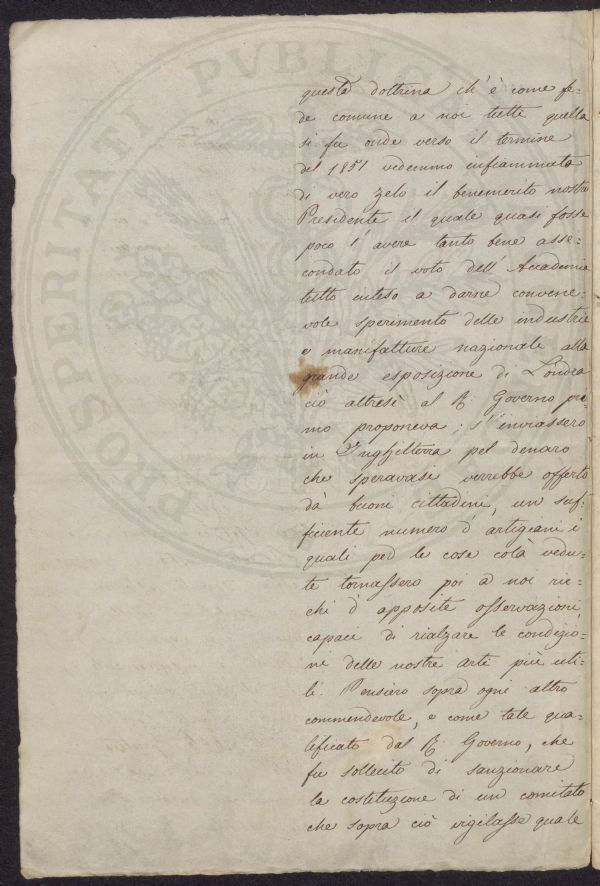 PROSPERITATI PVBLICAE
questa dottrina ch' è come fe-
de comune a noi tutti quella
si fu onde verso il termine
del 1851 vedemmo infiammato
di vero zelo il benemerito nostro
Presidente il quale quasi fosse
poco l' avere tanto bene asse-
condato il voto dell' Accademia
tutto inteso a darne convene-
vole sperimento delle industrie
e manifatture nazionale alla
grande esposizione di Londra
ciò altresì al R Governo pri-
mo proponeva: s' inviassero
in Inghilterra pel denaro
che speravasi verrebbe offerto
dà buoni cittadini, un suf-
ficiente numero d' artigiani i
quali per le cose colà vedu-
te tornassero poi a noi ric-
chi d' apposite osservazioni
capaci di rialzare le condizio-
ni delle nostre arti più uti-
li. Pensiero sopra ogni altro
commendevole, e come tale qua-
lificato dal R Governo, che
fu sollecito di sanzionare
la costituzione di un comitato
che sopra ciò vigilasse quale